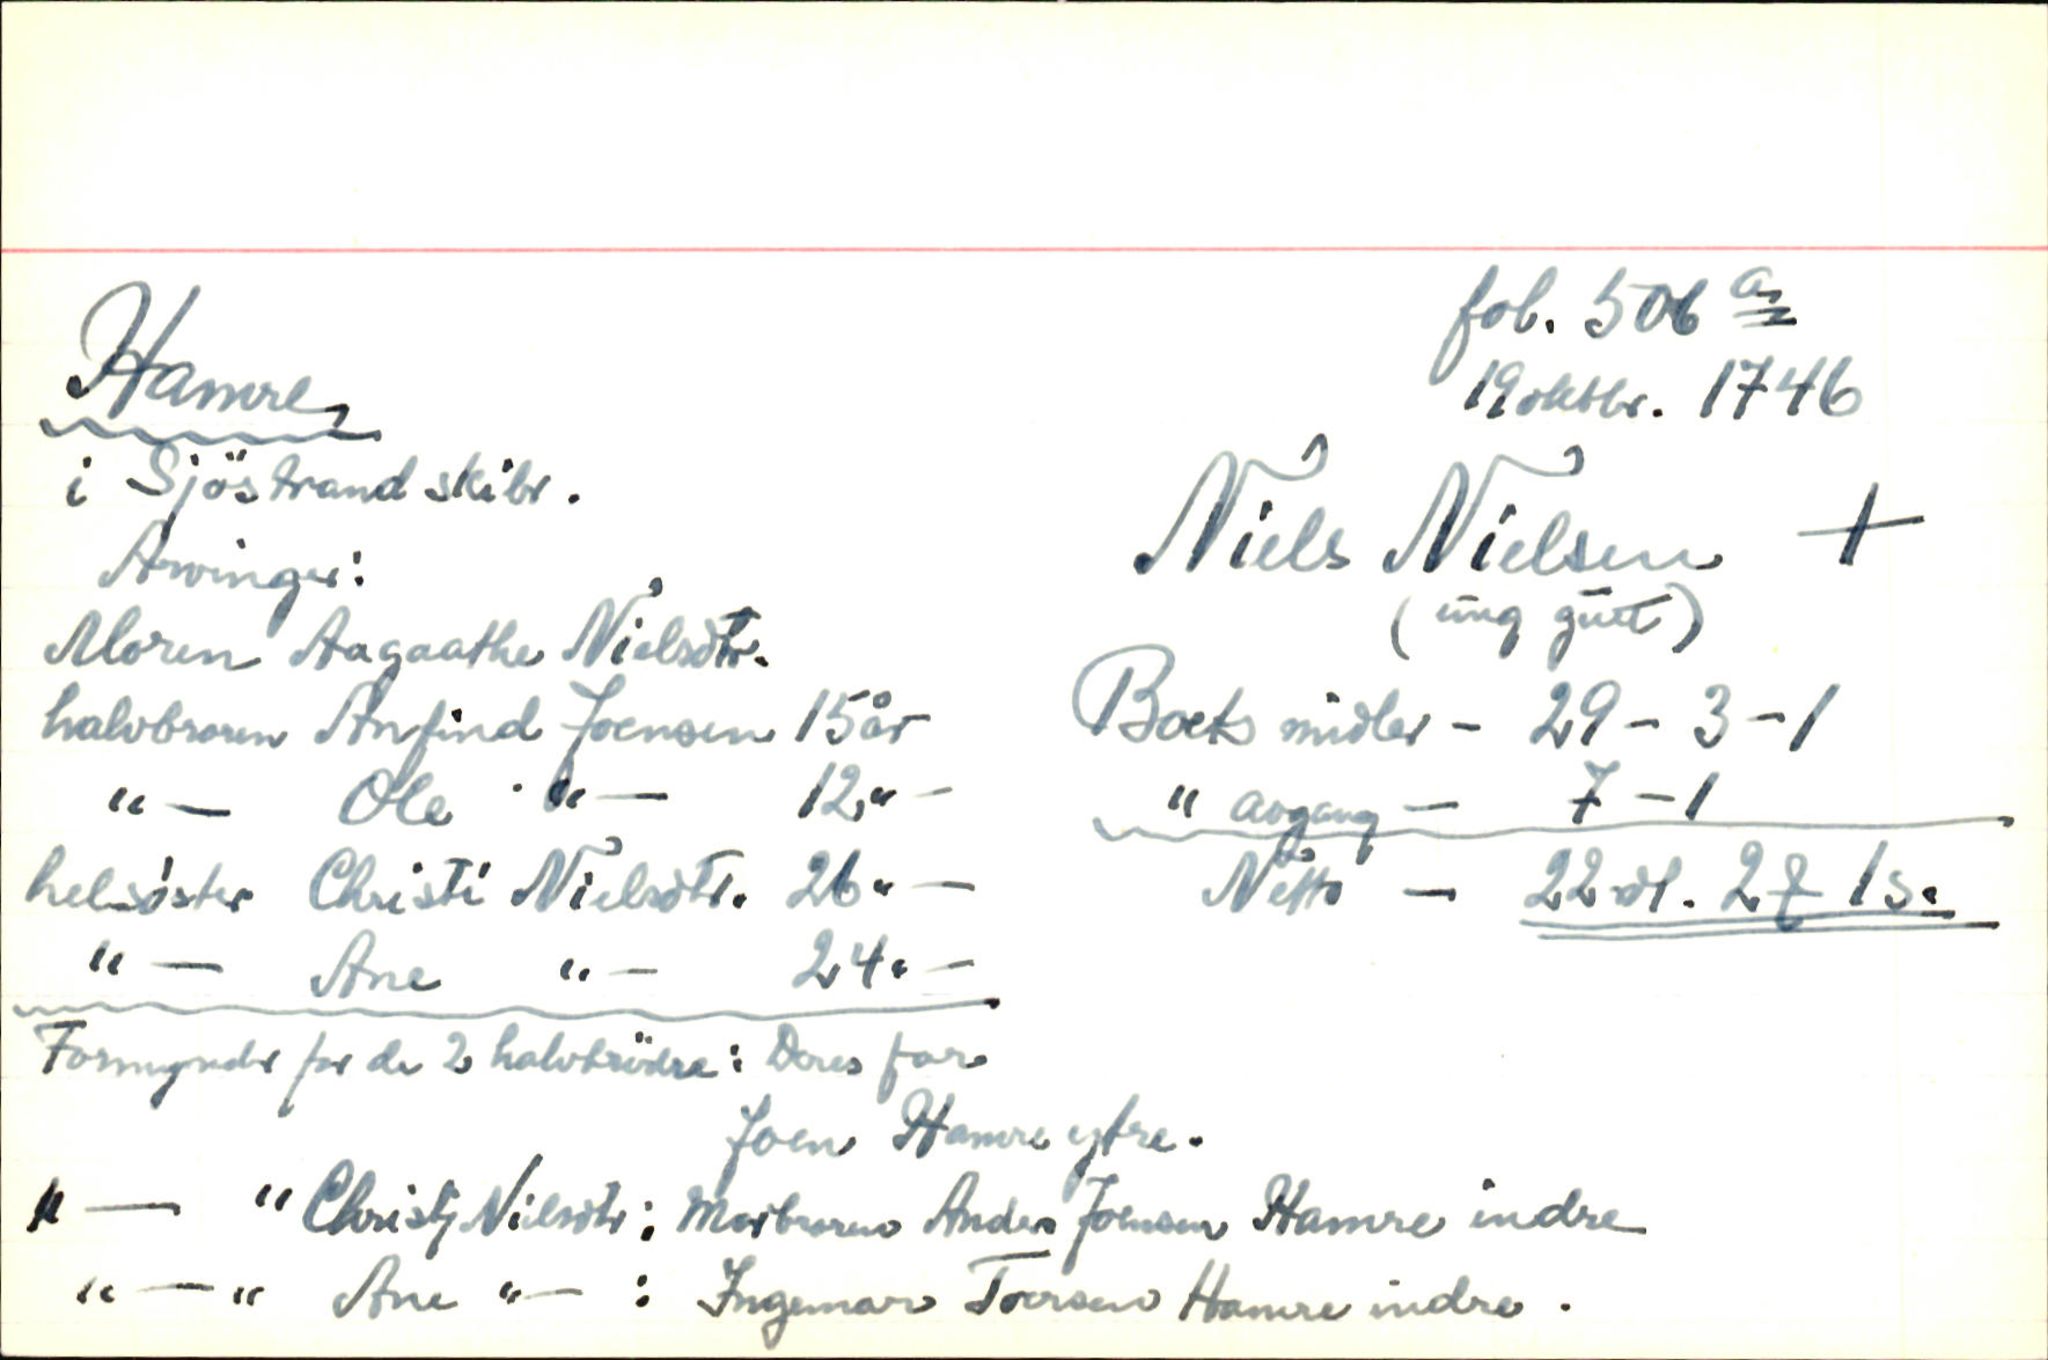 fol. 506 a
19 oktbr. 1746
Hamre
i Sjöstrand skibr.
Niels Nielsen +
(ung gutt)
Arvinger:
Moren Aagaathe Nielsdtr.
halvbroren Anfind Joensen 15 år
"— Ole "— 12 "—
helsöster Christi Nielsdtr. 26 "—
"— Ane "— 24 "—
Boets midler - 29 - 3 - 1
" avgang — 7 - 1
Netto — 22 dl. 2 ƺ 1 s.
Formynder for de 2 halvbrödre: Deres far
Joen Hamre ytre.
"— " Christj Nielsdtr: Morbroren Anders Joensen Hamre indre
"— " Ane "— : Ingemar Toersen Hamre indre.